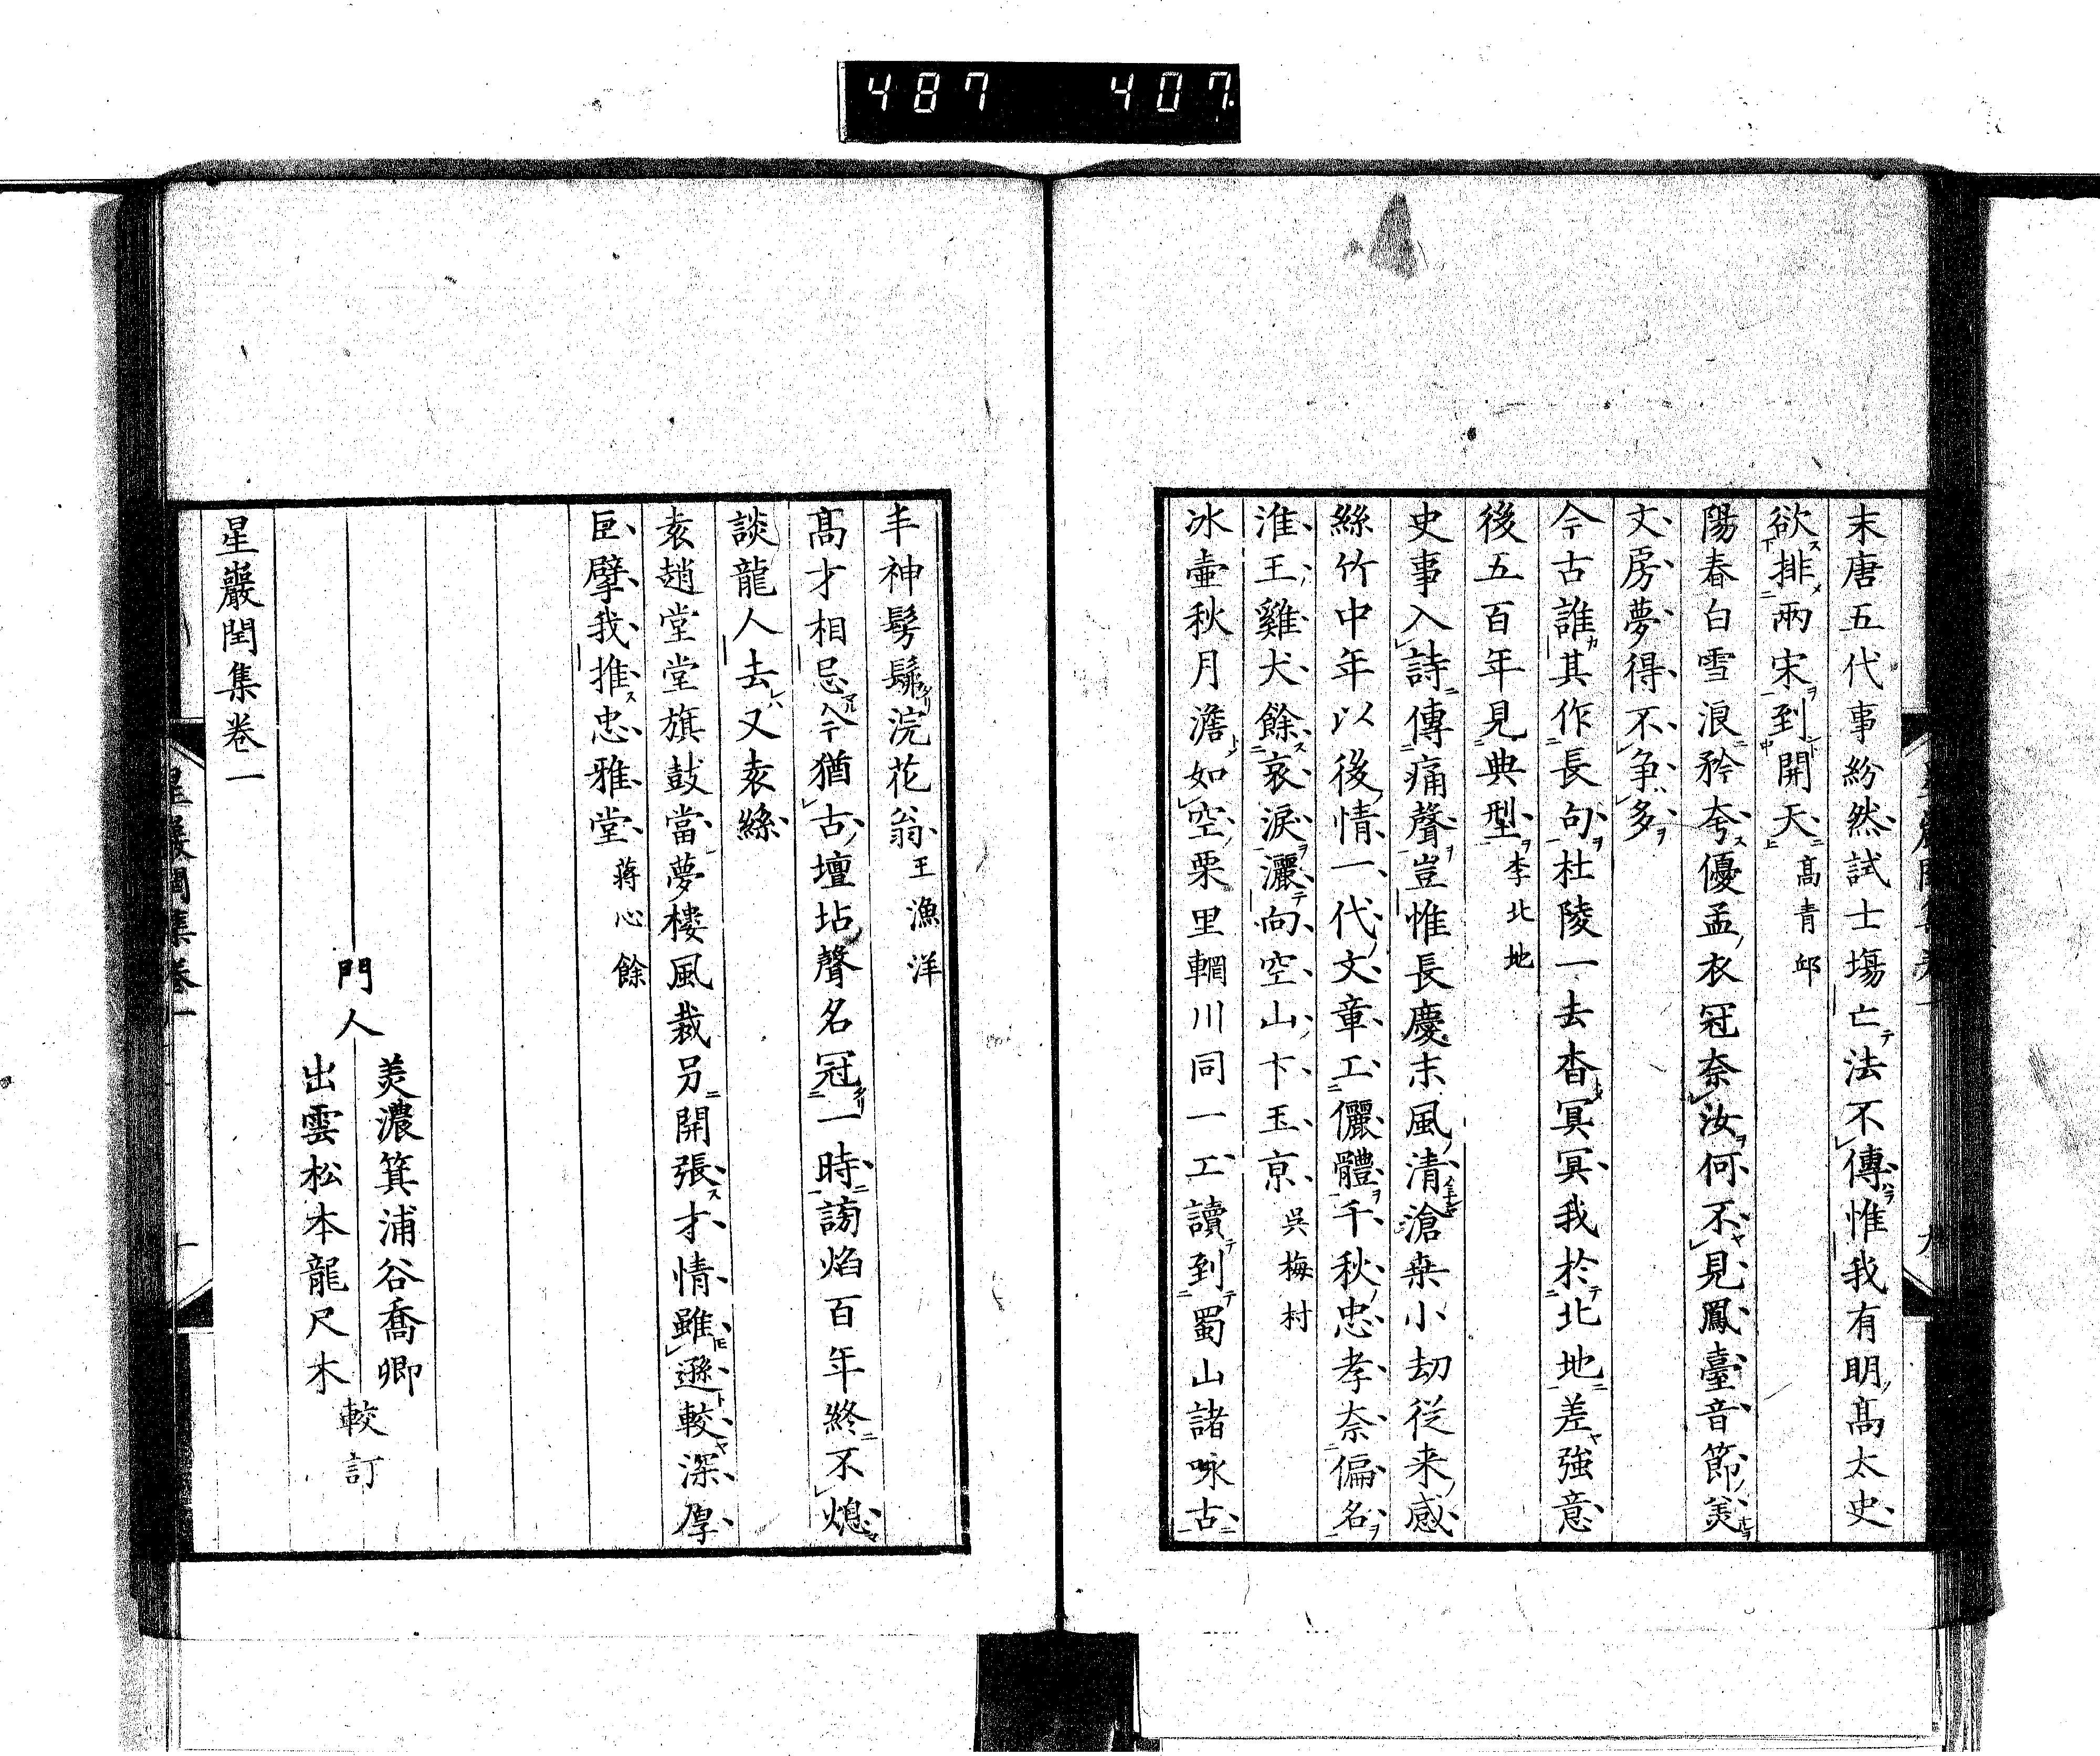 487 407
末唐五代事紛然試士塲亡法不傳惟我有明高太史
欲排兩宋到開天 髙青邱
陽春白雪浪矜夸優孟衣冠奈汝何不見鳳臺音節羙
文房夢得不争多
今古誰其作長句杜陵一去杳冥冥我於北地差強意
後五百年見典型 李北地
史事入詩傳痛聲豈惟長慶末風清滄桒小劫従来感
絲竹中年以後情一代文章工儷體千秋忠孝奈偏名
淮王雞犬餘哀淚灑向空山卞玉京 吳梅村
冰壷秋月澹如空栗里輞川同一工讀到蜀山諸咏古
丰神髣髴浣花翁 王漁洋
髙才相忌今猶古壇坫聲名冠一時謗焰百年終不熄
談龍人去又袁絲
袁趙堂堂旗鼓當夢樓風裁另開張才情雖遜較深厚
巨擘我推忠雅堂 蔣心餘
門人
羙濃箕浦谷喬卿
出雲松本龍尺木
較訂
星巖閏集卷一
星巖閏集卷一